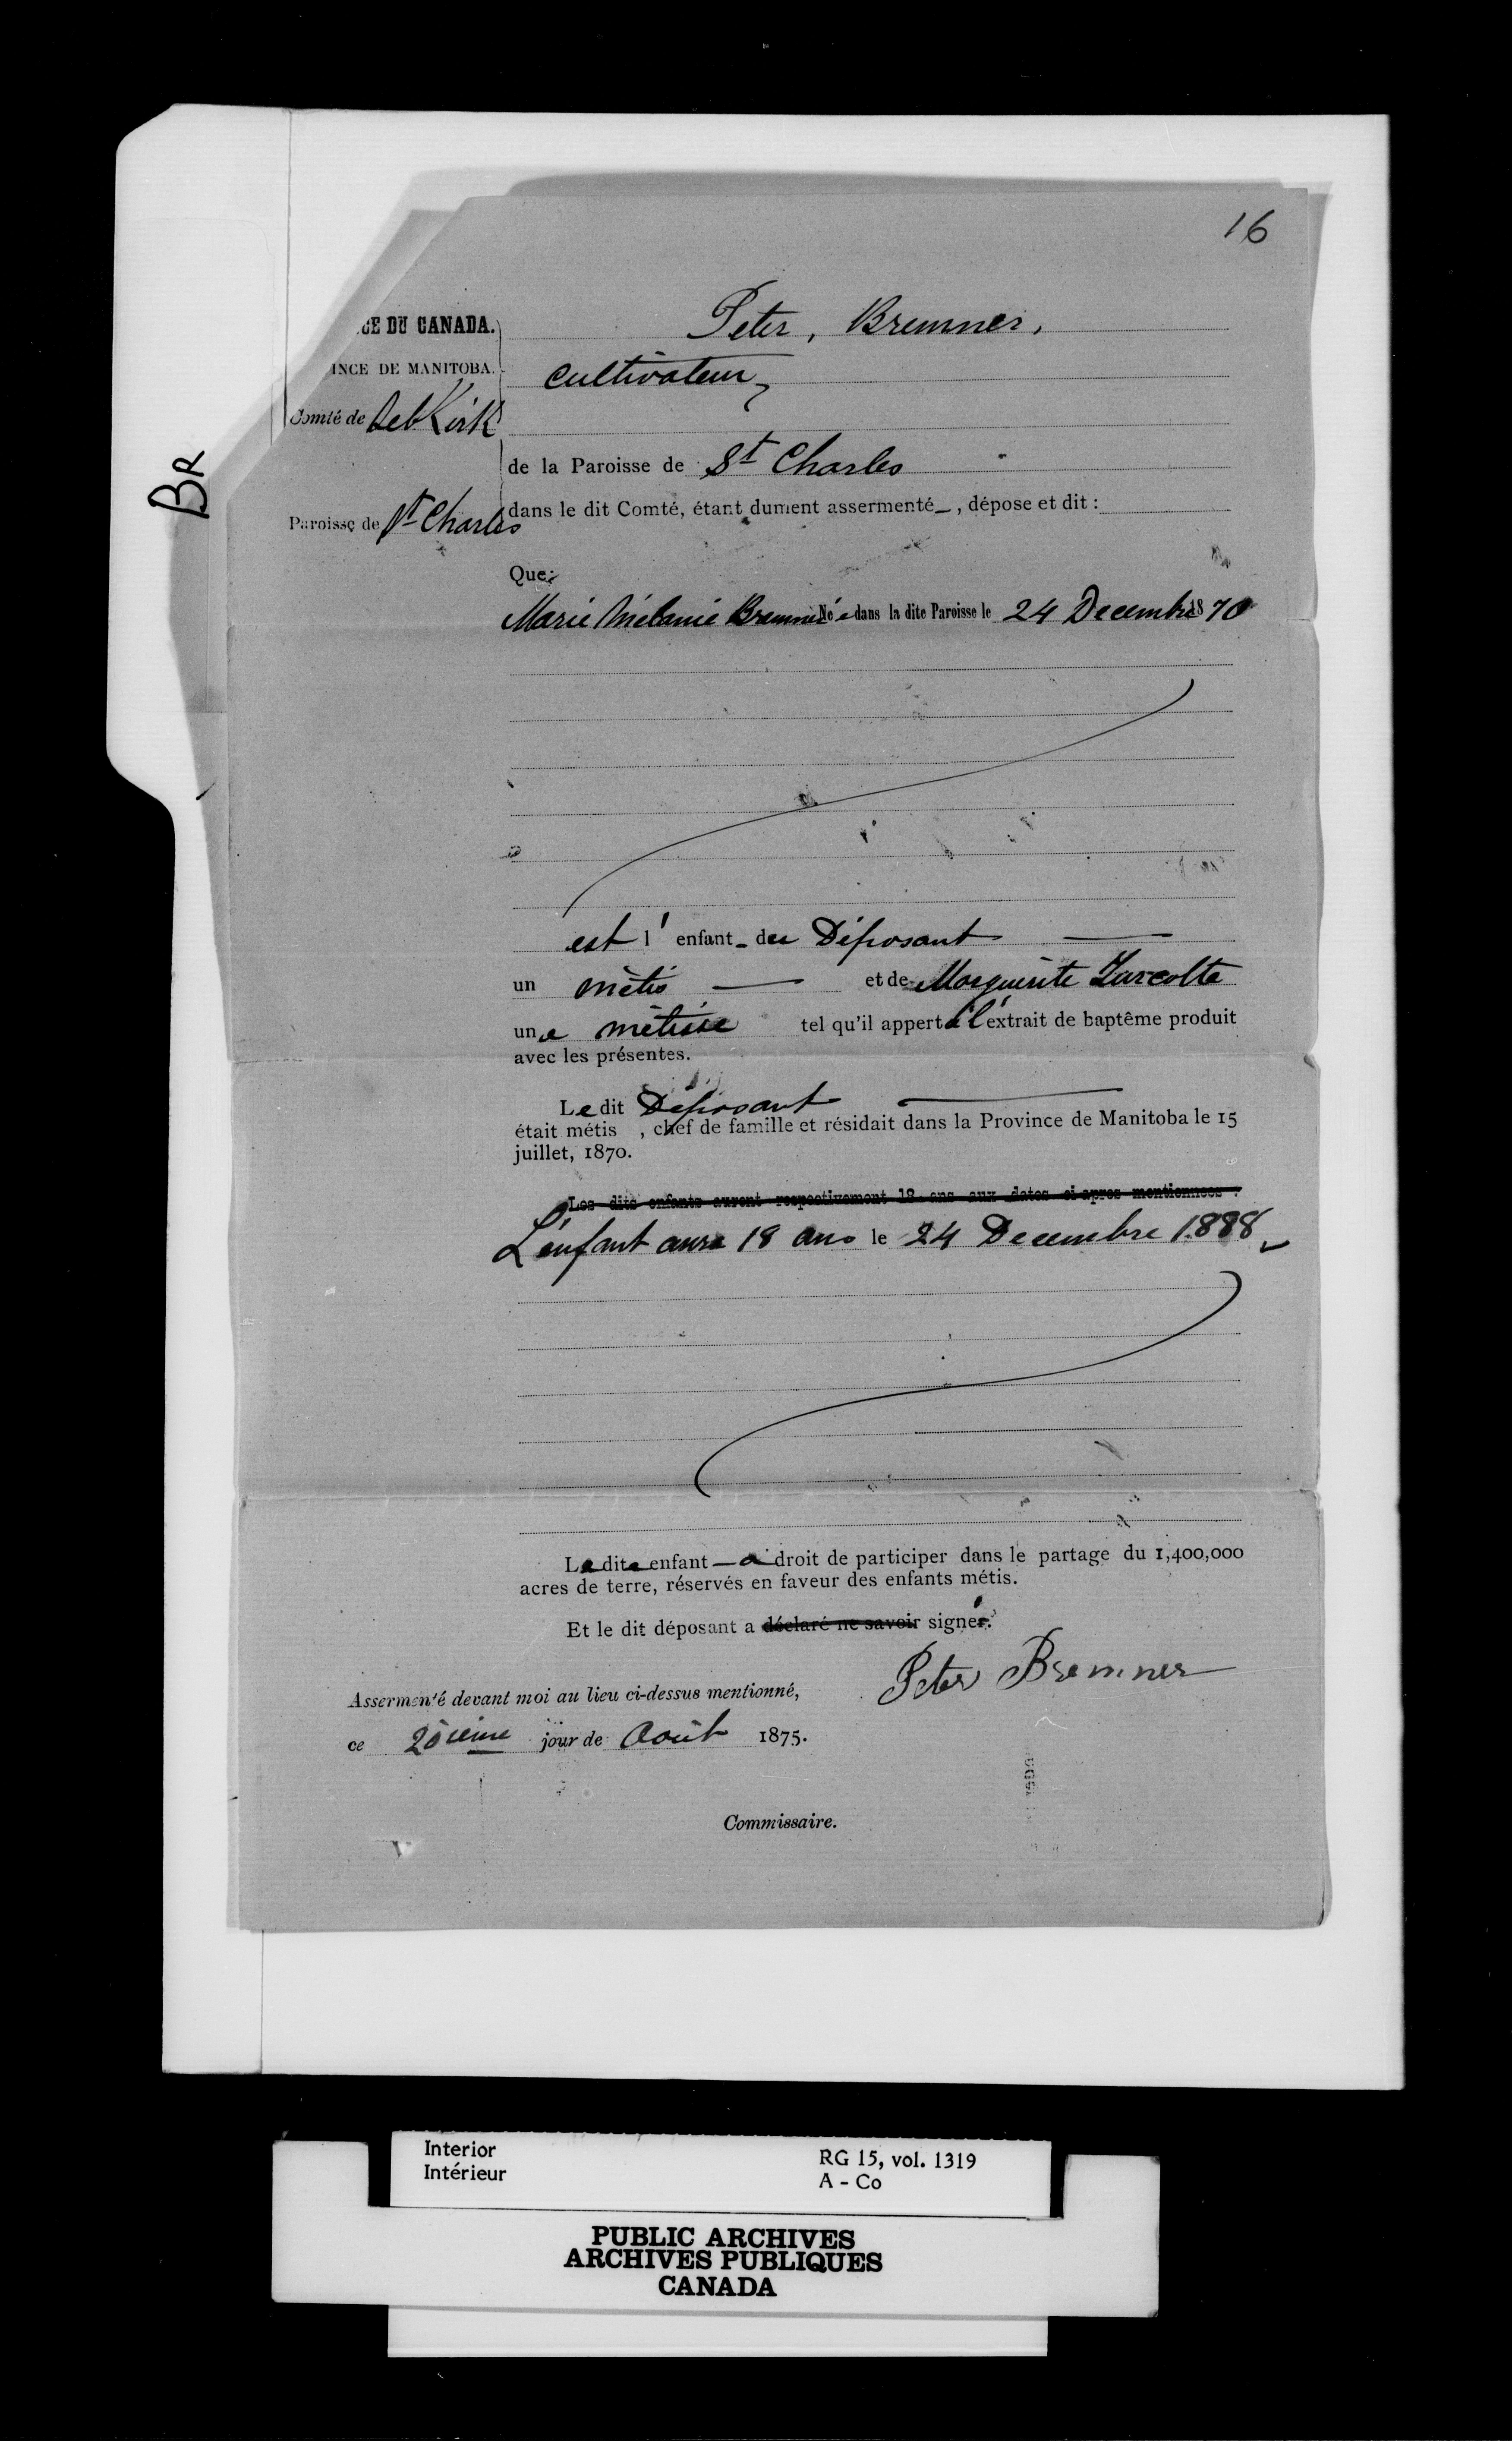 16
BR
CE DU CANADA.
INCE DE MANITOBA.
Comté de Selkirk
Paroisse de St Charles
Peter, Bremner,
Cultivateur,
de la Paroisse de St Charles
dans le dit Comté, étant dument assermenté , dépose et dit :
Que:
Marie Mélanie Bremner Née dans la dite Paroisse le 24 Decembre 1870
est l'enfant du Déposant
un métis et de Marguerite Turcotte
une métisse tel qu'il appert à l'extrait de baptême produit
avec les présentes.
Le dit Déposant
était métis , chef de famille et résidait dans la Province de Manitoba le 15
juillet, 1870.
Les dits enfants auront respectivement 18 ans aux dates ci-apres mentionnees :
L'enfant aura 18 ans le 24 Decembre 1888
La dite enfant a droit de participer dans le partage du 1,400,000
acres de terre, réservés en faveur des enfants métis.
Et le dit déposant a déclaré ne savoir signé.
Peter Bremner
Assermenté devant moi au lieu ci-dessus mentionné,
ce jour de Août 1875.
Commissaire.
Interior
Intérieur
RG 15, vol. 1319
A - Co
PUBLIC ARCHIVES
ARCHIVES PUBLIQUES
CANADA